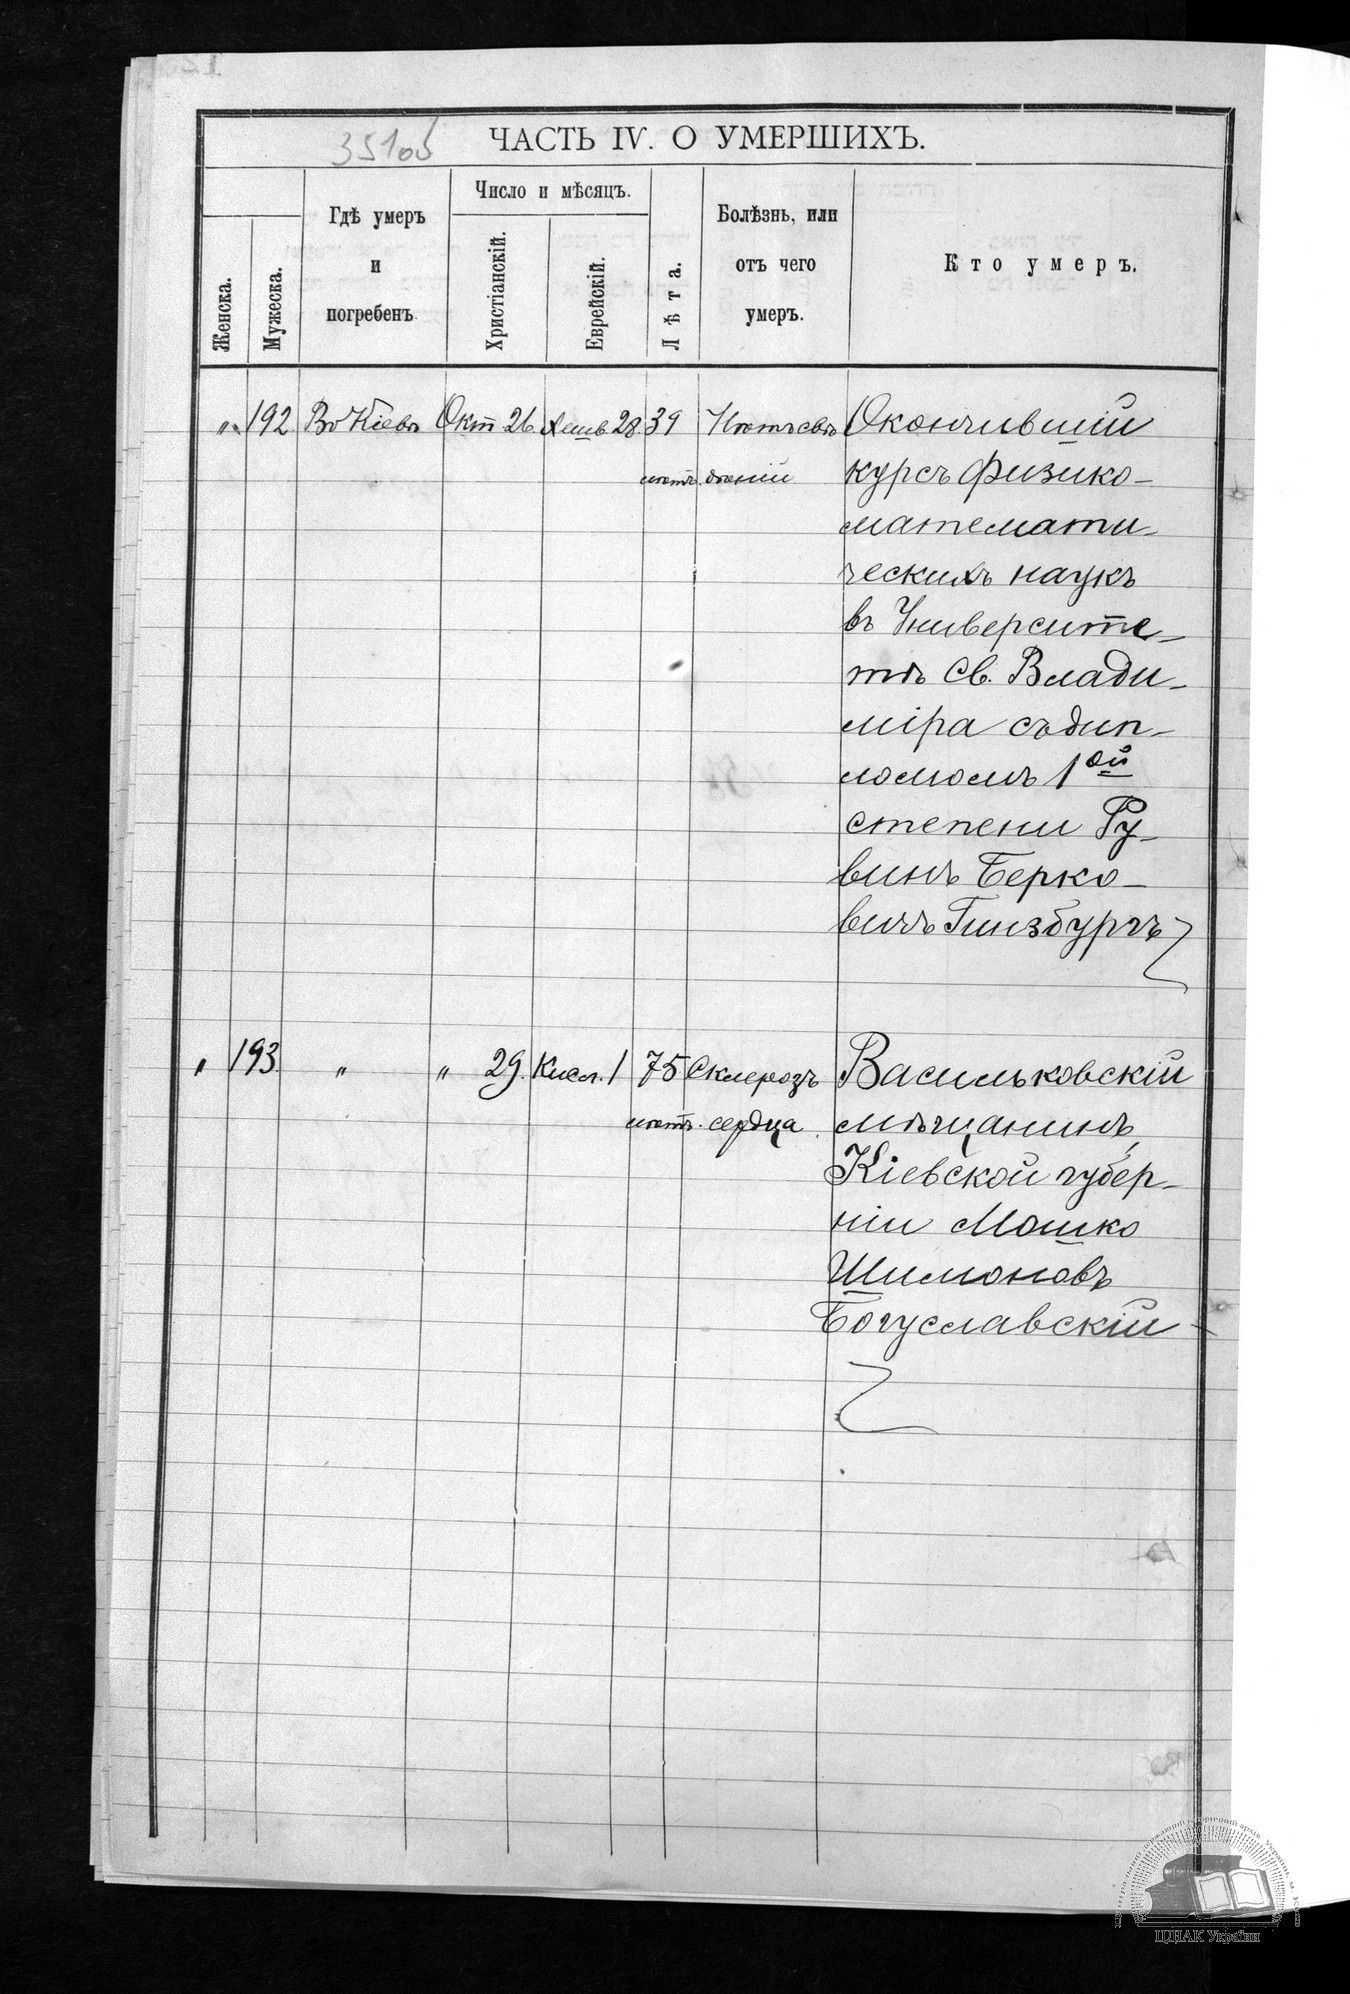 351об
ЧАСТЬ IV. О УМЕРШИХЪ.
Женска.
Мужеска.
Гдѣ умеръ
и
погребенъ
Число и мѣсяцъ.
Христіанскій.
Еврейскій.
Лѣта.
Болѣзнь, или
отъ чего
умеръ.
Кто умеръ.
" 192 Въ Кіевѣ Окт 26 Хешв. 28. 39 Нѣтъ свѣ Окончившій
лѣтъ. дѣній курсъ физико-
математи-
ческихъ наукъ
въ Университе-
тѣ Св. Влади-
міра съ дип-
ломомъ 1ой
степени Ру-
винъ Берко-
вичъ Гинзбургъ
" 193 " " 29. Кисл. 1 75 Склерозъ Васильковскій
лѣтъ. сердца. мѣщанинъ,
Кіевской губер-
ніи Мошко
Шимоновъ
Богуславскій
ЦДІАК України